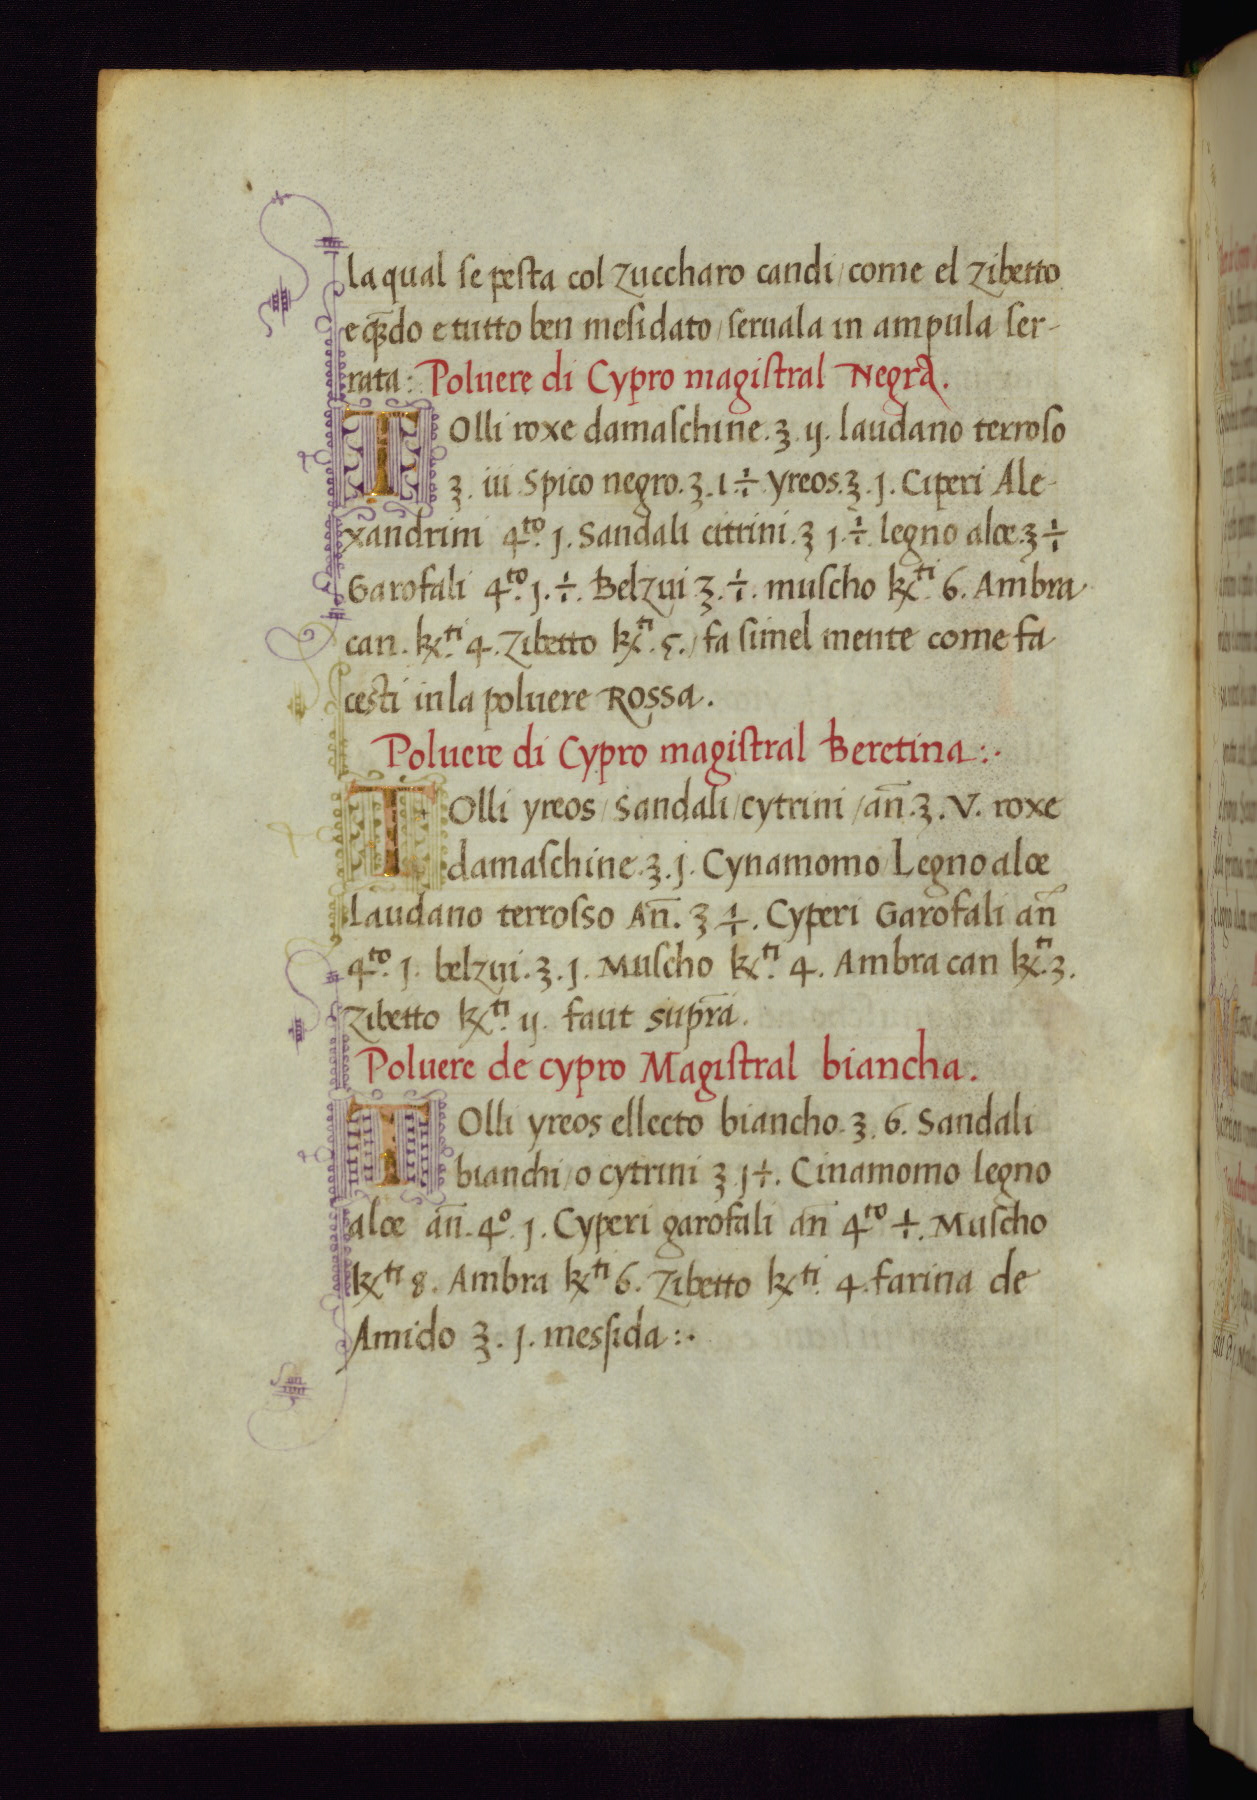 la qual se pesta col zuccharo candi / come el zibetto
e qn̄do e tutto ben mesidato / seruala in ampula ser-
rata : Poluere di Cypro magistral Negra.
TOlli roxe damaschine . ʒ . ij . laudano terroso
ʒ . iii Spico negro . ʒ . 1 . ÷ . yreos . ʒ . j . Ciperi Ale-
xandrini 4.to j . Sandali citrini . ʒ j . ÷ . legno aloe . ʒ ÷
Garofali 4.to j . ÷ . Belzui . ʒ . ÷ . muscho kx.ti 6 . Ambra
can . kx.ti 4 . Zibetto kx.ti . 5 . / fa simel mente come fa
cesti in la poluere Rossa .
Poluere di Cypro magistral Beretina : .
TOlli yreos / Sandali / cytrini / an̄ . ʒ . V . roxe
damaschine . ʒ . j . Cynamomo / Legno aloe
Laudano terrosso An̄ . ʒ ÷ . Cyperi Garofali an̄
4.to j . belzui . ʒ . j . Muscho kx.ti 4 . Ambra can kx.ti 3 .
Zibetto kx.ti ij . faut supra .
Poluere de cypro Magistral biancha .
TOlli yreos ellecto biancho . ʒ . 6 . Sandali
bianchi / o cytrini ʒ j ÷ . Cinamomo legno
aloe an̄ . 4.o j . Cyperi garofali an̄ 4.to ÷ . Muscho
kx.ti 8 . Ambra kx.ti 6 . Zibetto kx.ti 4 . farina de
Amido ʒ . j . messida : .